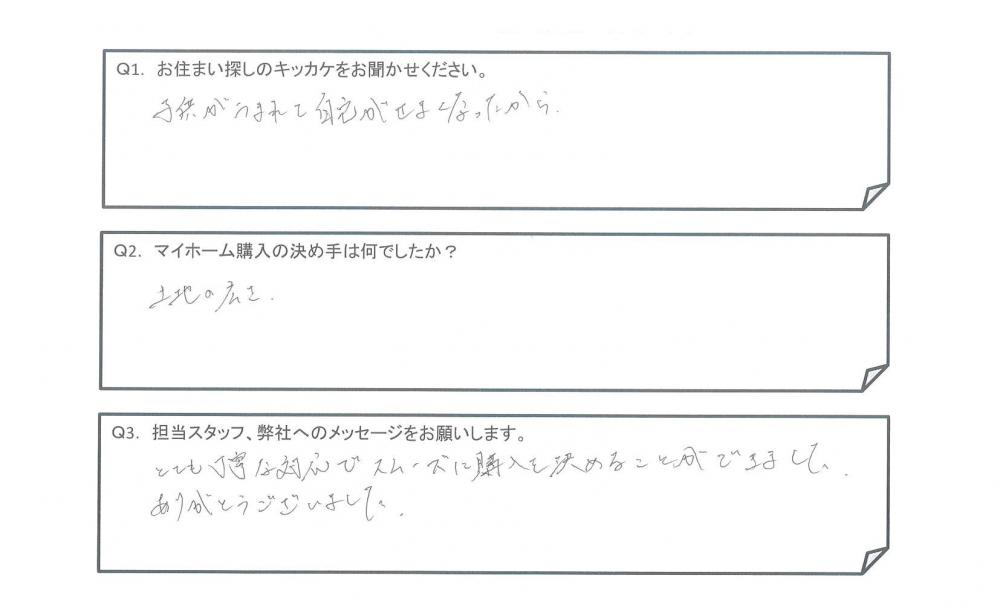 Q1. お住まい探しのキッカケをお聞かせください。
子供がうまれて自宅がせまくなったから.
Q2. マイホーム購入の決め手は何でしたか？
土地の広さ.
Q3. 担当スタッフ、弊社へのメッセージをお願いします。
とても丁寧な対応でスムーズに購入を決めることができました.
ありがとうございました.